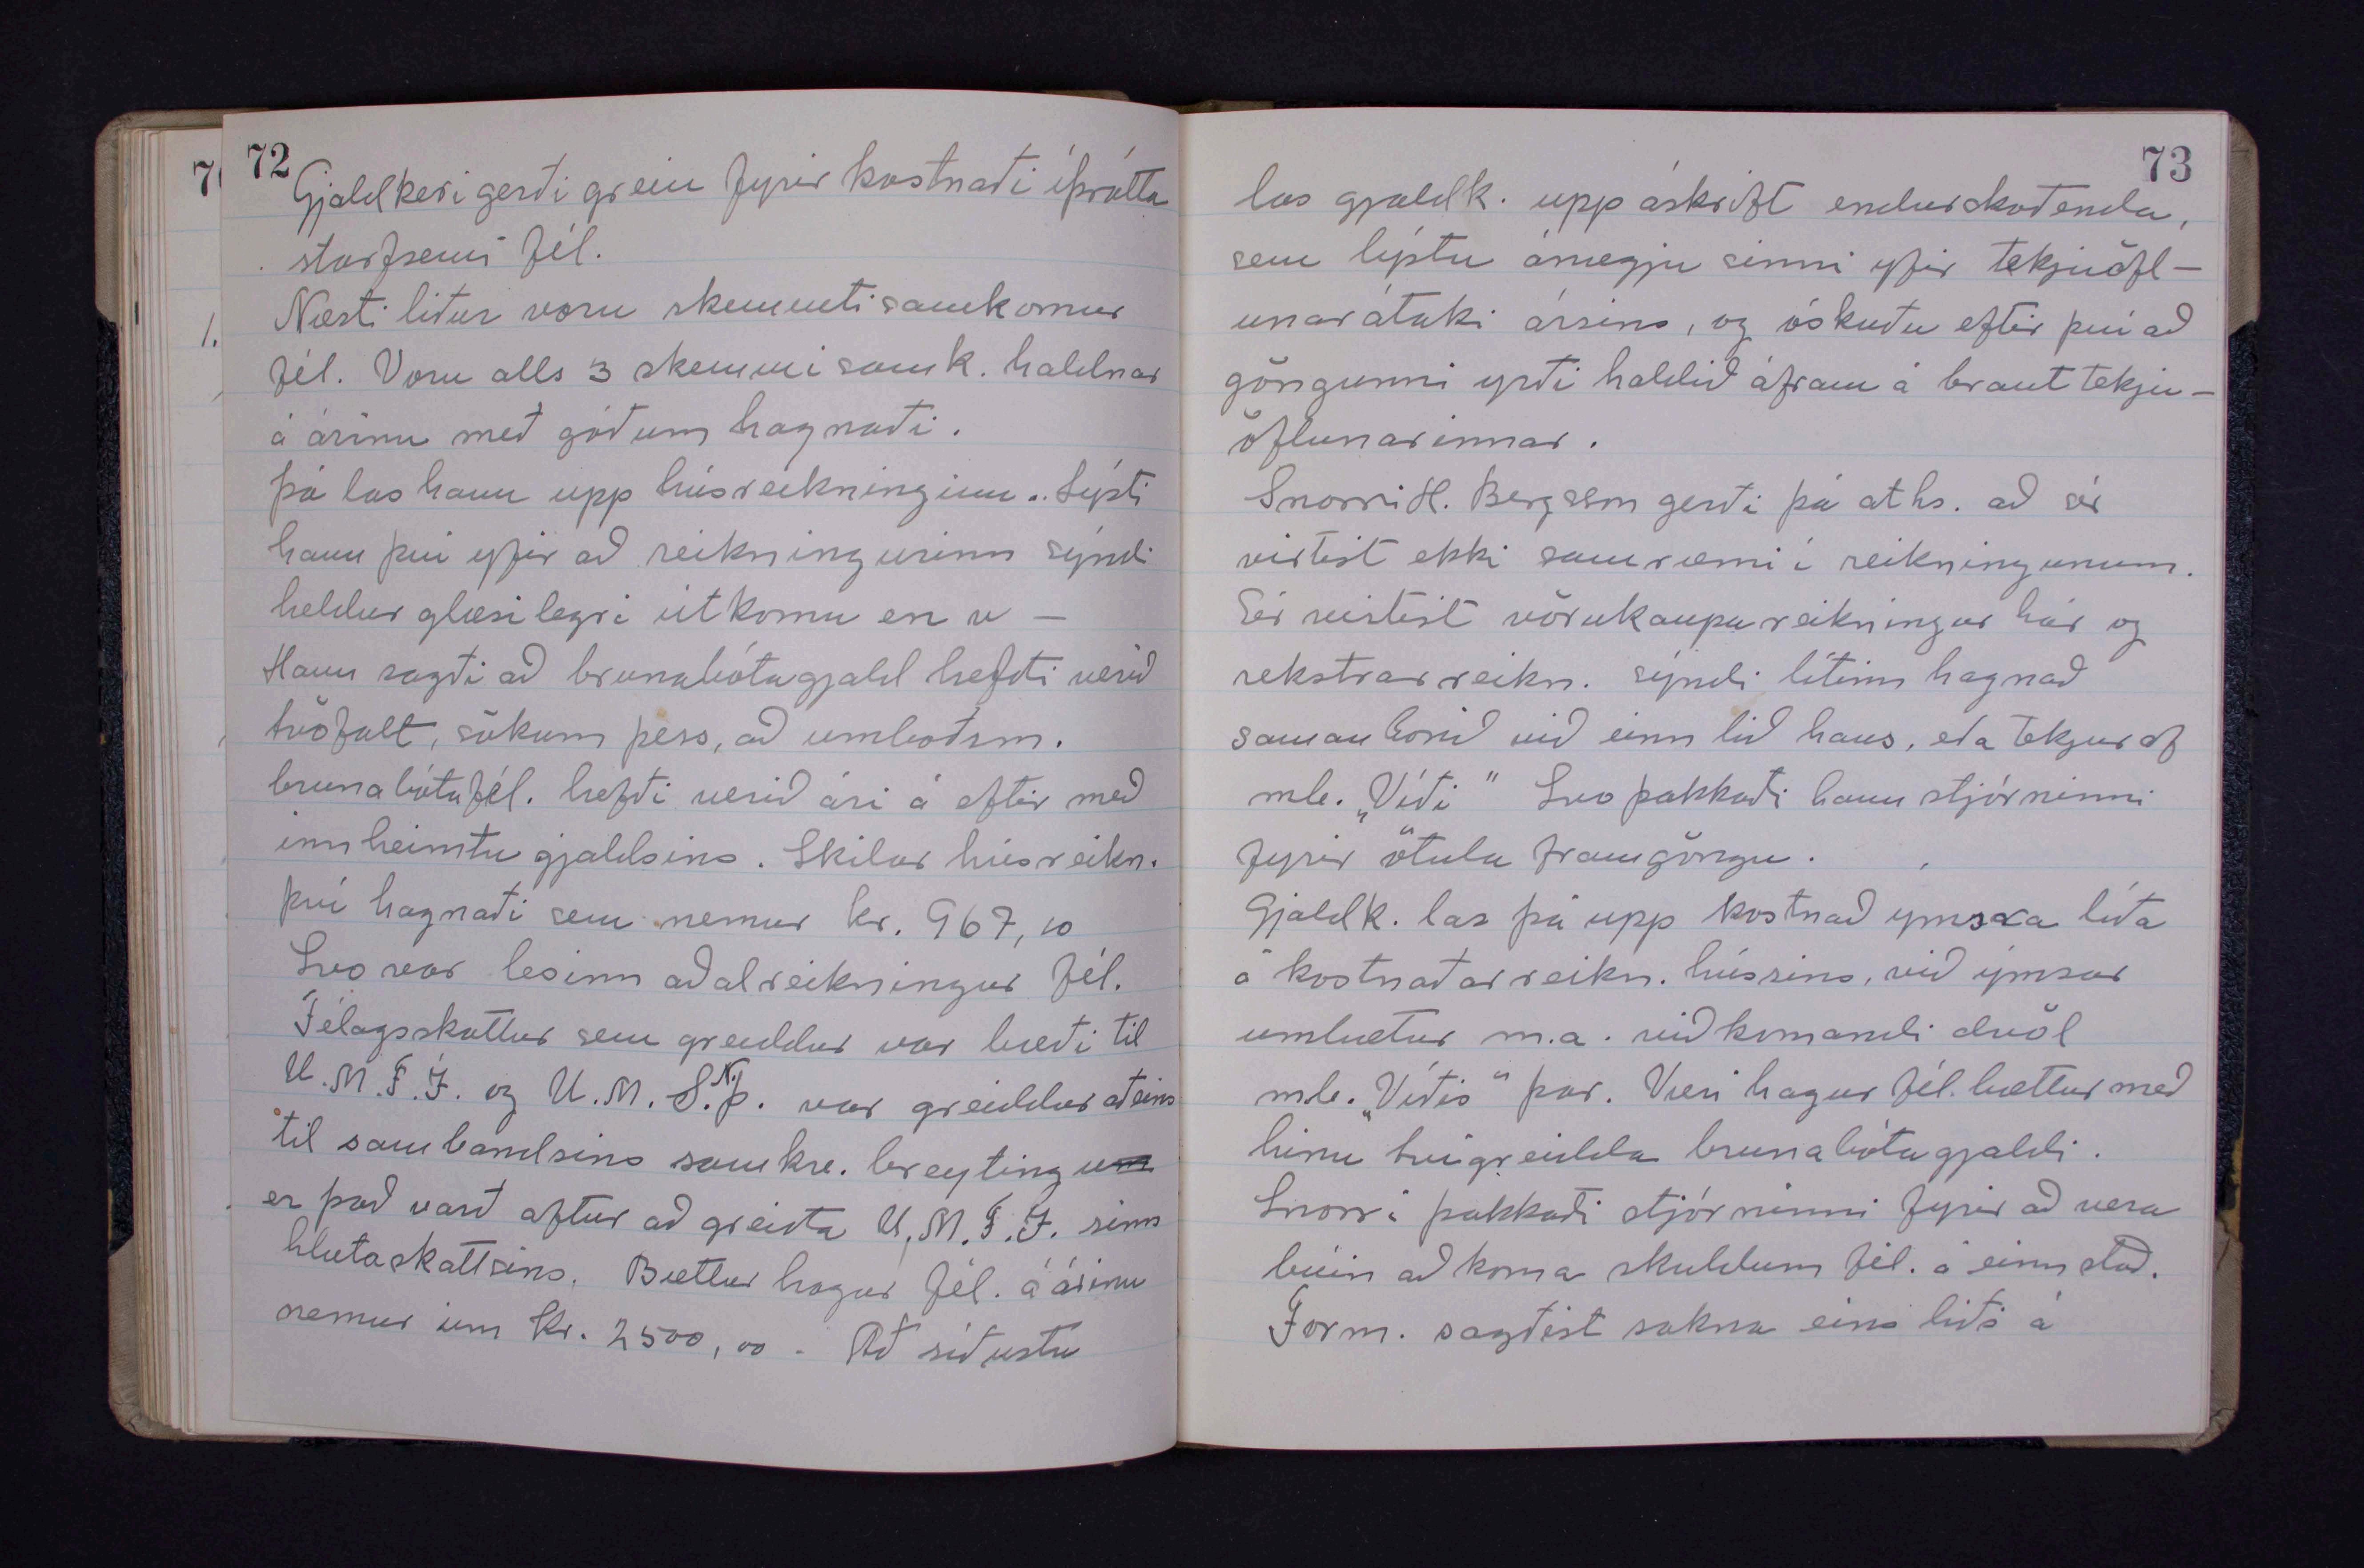 72
Gjaldkeri gerði grein fyrir kostnaði íþrótta
starfsemi fél.
Næsti liður voru skemmtisamkomur
fél. Voru alls 3 skemmisamk. haldnar
á árinu með góðum hagnaði.
Þá las hann upp húsreikninginn. Lýsti
hann því yfir að reikningurinn sýndi
heldur glæsilegri útkomu en v —
Hann sagði að brunabótagjald hefði verið
tvöfalt, sökum þess, að umboðsm.
brunabótafél. hefði verið ári á eftir með
innheimtu gjaldsins. Skilar húsreikn.
því hagnaði sem nemur kr. 967,10
Svo var lesinn aðalreikningur fél.
Félagsskattur sem greiddur var bæði til
U.M.F.Í. og U.M.S.N.Þ. var greiddur aðeins
til sambandsins samkv. breytingu
er það varð aftur að greiða U.M.F.Í. sinn
hluta skattsins. Bættur hagur fél. á árinu
nemur um kr. 2500,00 - Að síðustu
73
las gjaldk. upp áskrift endurskoðenda,
sem lýstu ánægju sinni yfir tekjuöfl-
unarátaki ársins, og óskuðu eftir því að
göngunni yrði haldið áfram á braut tekju-
öflunarinnar.
Snorri H. Bergsson gerði þá aths. að sér
virtist ekki samræmi í reikningunum.
Sér virtist vörukaupareikningur hár og
rekstrarreikn. sýndi lítinn hagnað
saman borið við einn lið hans, eða tekjur af
mb. „Víði" Svo þakkaði hann stjórninni
fyrir ötula framgöngu.
Gjaldk. las þá upp kostnað ymsra liða
á kostnaðarreikn. hússins, við ýmsar
umbætur m.a. viðkomandi dvöl
mb. „Víðis" þar. Væri hagur fél. bættur með
hinu tvígreidda brunabótagjaldi.
Snorri þakkaði stjórninni fyrir að vera
búin að koma skuldum fél. á einn stað.
Form. sagðist sakna eins liðs á